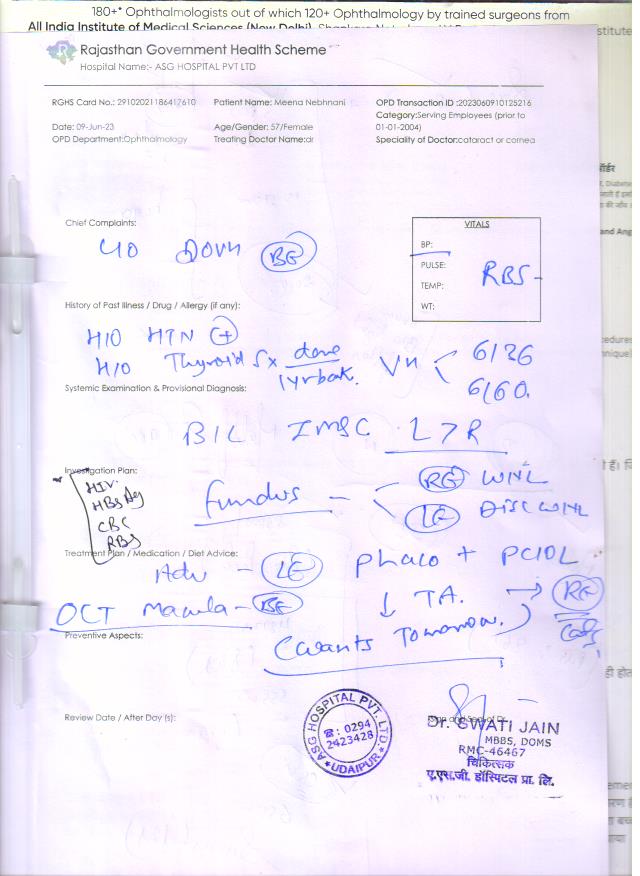 180+* Ophthalmologists out of which 120+ Ophthalmology by trained surgeons from
All India Institute of Medical Sciences (New Delhi),
stitute
Rajasthan Government Health Scheme
Hospital Name:- ASG HOSPITAL PVT LTD
RGHS Card No.: 29102021186417610 Patient Name: Meena Nebhnani OPD Transaction ID :2023060910125216
Category:Serving Employees (prior to 01-01-2004)
Date: 09-Jun-23 Age/Gender: 57/Female
OPD Department:Ophthalmology Treating Doctor Name:dr Speciality of Doctor:cataract or cornea
Chief Complaints:
C/O DOVN BE
VITALS
BP:
PULSE:
TEMP:
WT:
RBS -
History of Past Illness / Drug / Allergy (if any):
H/O HTN +
H/O Thyroid Sx done 1yr back.
Vn < 6/36
6/60.
Systemic Examination & Provisional Diagnosis:
B/L IMSC L>R
Investigation Plan:
HIV.
HBsAg
CBC
RBS
Fundus - RE WNL
LE Disc WNL
Treatment Plan / Medication / Diet Advice:
Adv - LE Phaco + PCIOL
OCT Macula - BE ↓ TA. → RE
(wants Tomorrow.)
Preventive Aspects:
Review Date / After Day (s):
ASG HOSPITAL PVT. LTD.
☎: 0294
2423428
UDAIPUR
Sign and Seal of Dr.
Dr. SWATI JAIN
MBBS, DOMS
RMC-46467
चिकित्सक
ए.एस.जी. हॉस्पिटल प्रा. लि.